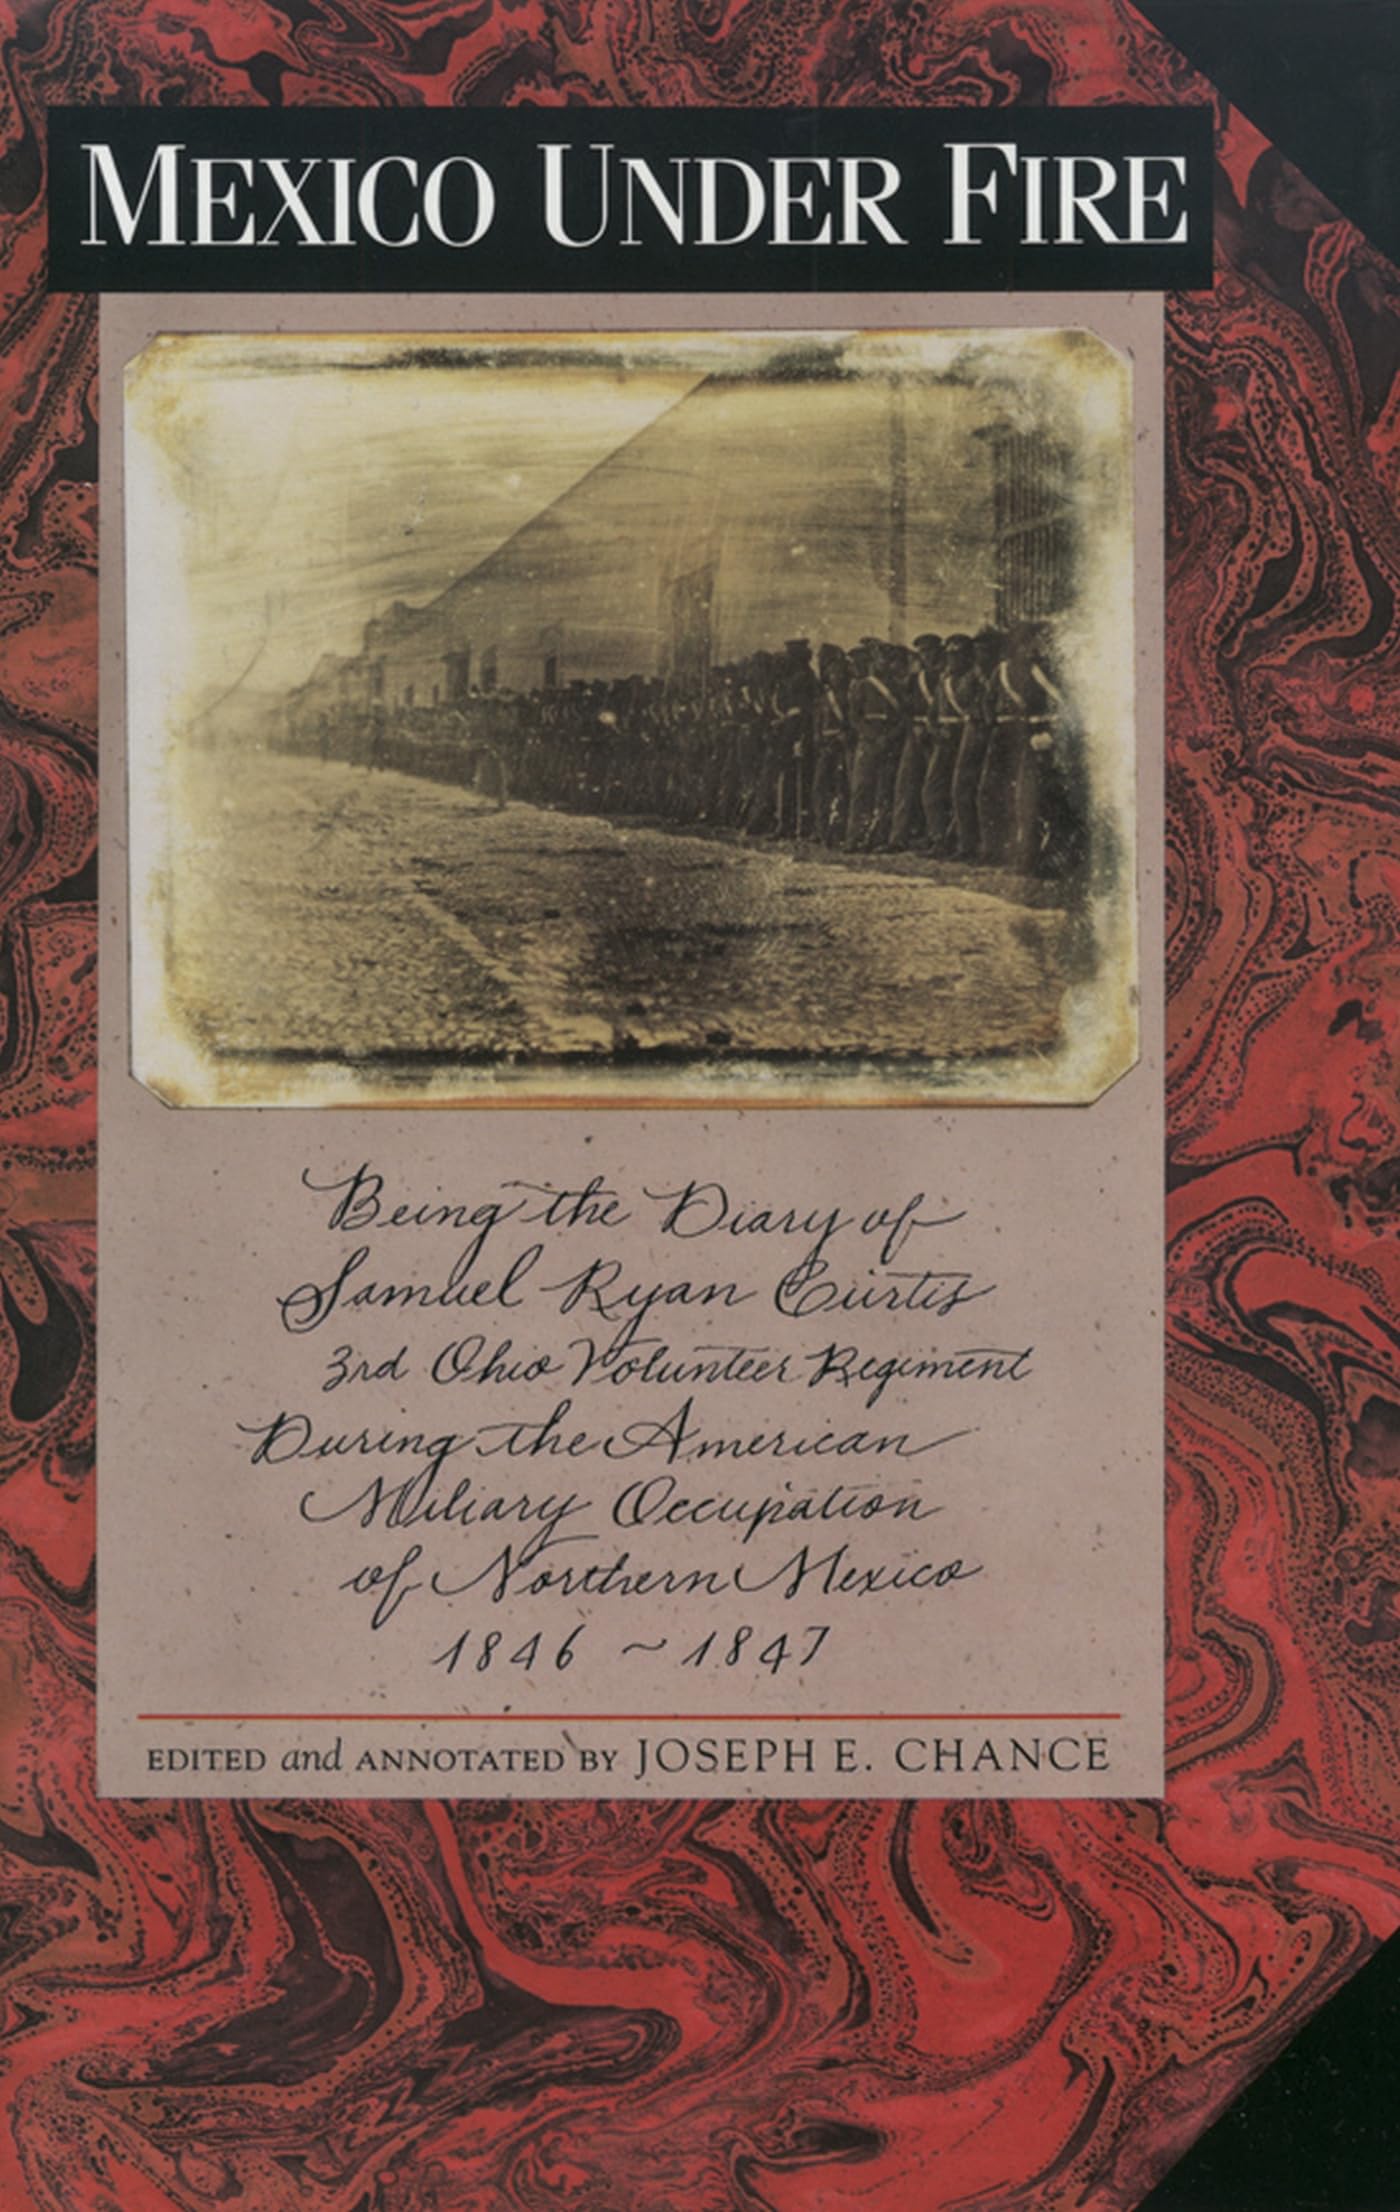 MEXICO UNDER FIRE
Being the Diary of
Samuel Ryan Curtis
3rd Ohio Volunteer Regiment
During the American
Miliary Occupation
of Northern Mexico
1846 ~ 1847
EDITED and ANNOTATED BY JOSEPH E. CHANCE